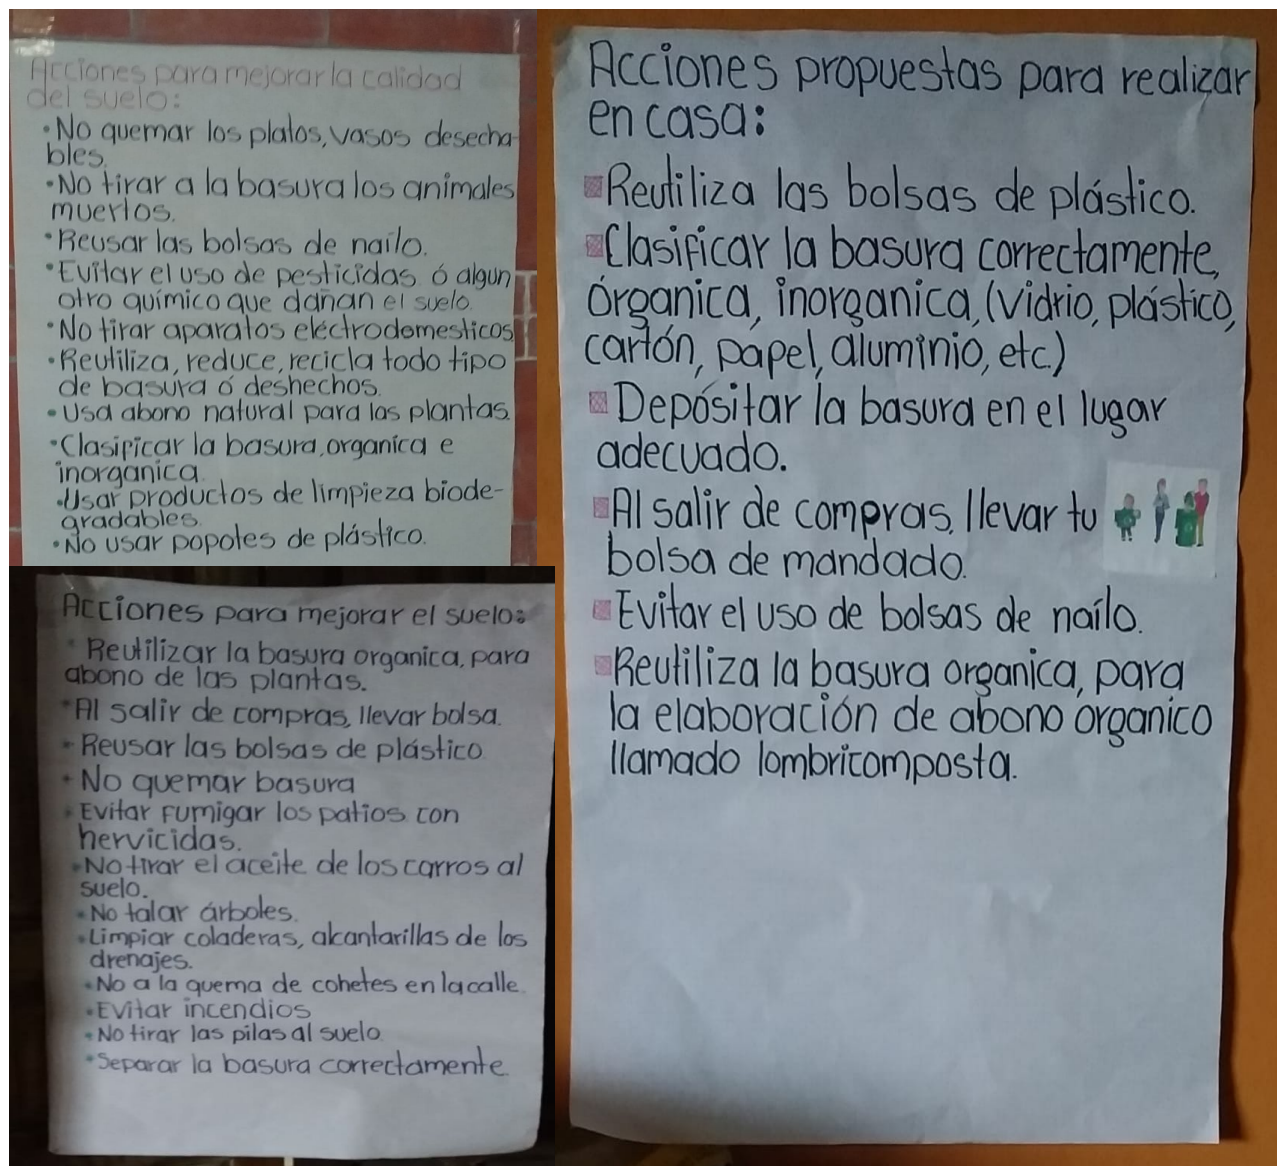 Acciones para mejorar la calidad
del suelo:
• No quemar los platos, vasos desecha-
bles.
• No tirar a la basura los animales
muertos.
• Reusar las bolsas de naílo.
• Evitar el uso de pesticidas ó algun
otro químico que dañan el suelo.
• No tirar aparatos eléctrodomesticos
• Reutiliza, reduce, recicla todo tipo
de basura ó deshechos.
• Usa abono natural para las plantas.
• Clasificar la basura, organica e
inorganica.
• Usar productos de limpieza biode-
gradables.
• No usar popotes de plástico.
Acciones para mejorar el suelo:
• Reutilizar la basura organica, para
abono de las plantas.
• Al salir de compras, llevar bolsa.
• Reusar las bolsas de plástico
• No quemar basura
• Evitar fumigar los patios con
hervicidas.
• No tirar el aceite de los carros al
suelo.
• No talar árboles.
• Limpiar coladeras, alcantarillas de los
drenajes.
• No a la quema de cohetes en la calle.
• Evitar incendios
• No tirar las pilas al suelo
• Separar la basura correctamente.
Acciones propuestas para realizar
en casa:
Reutiliza las bolsas de plástico.
Clasificar la basura correctamente,
órganica, inorganica, (vidrio, plástico,
cartón, papel, aluminio, etc.)
Depósitar la basura en el lugar
adecuado.
Al salir de compras, llevar tu
bolsa de mandado.
Evitar el uso de bolsas de naílo.
Reutiliza la basura organica, para
la elaboración de abono organico
llamado lombricomposta.